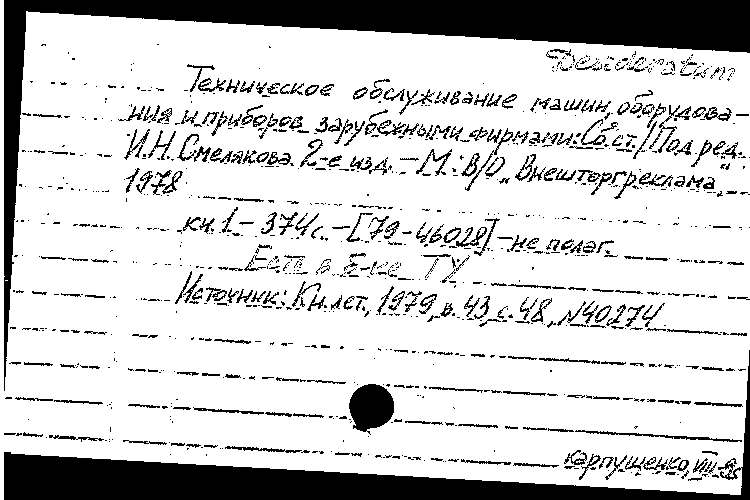 Desideratum
Техническое обслуживание машин, оборудова-
ния и приборов зарубежными фирмами: Сб. ст./Под ред.
И.Н. Смелякова. 2-е изд. - М.: В/О „Внешторгреклама“,
1978
кн. 1 - 374 с. - [79-46028] - не полаг.
Есть в Б-ке ТУ
Источник: Кн. лет., 1979, в. 43, с. 48, №40274
Карпущенко, VIII-